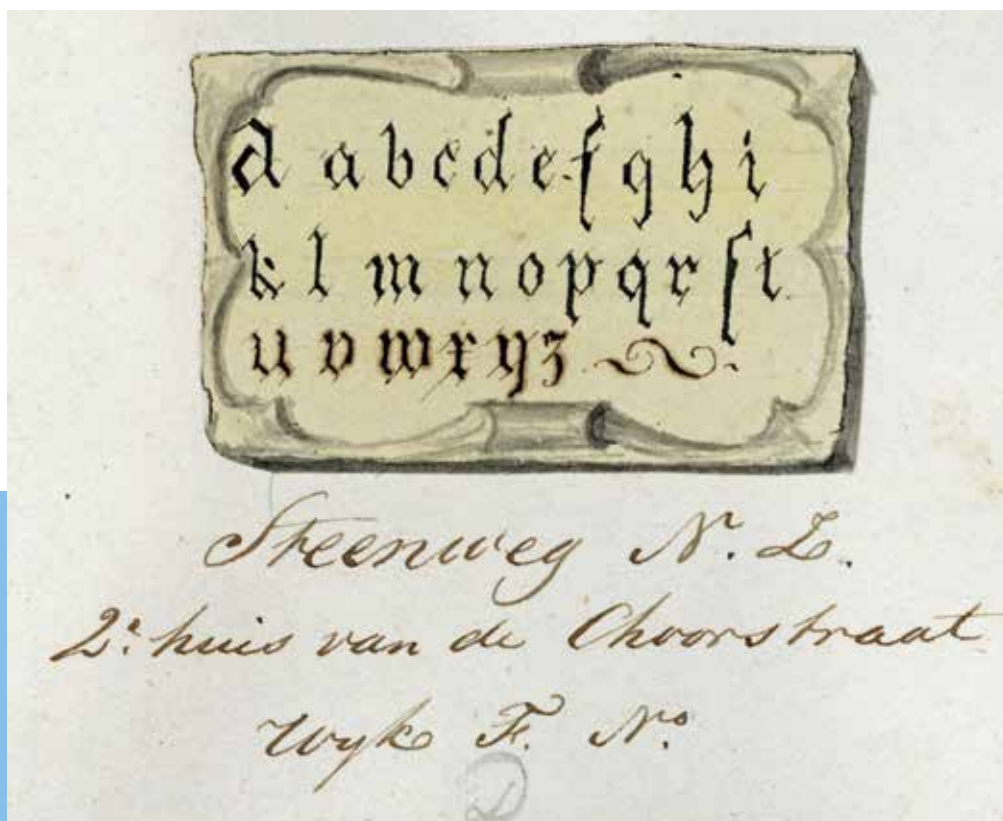 a a b c d e f g h i
k l m n o p q r ſ t
u v w x y z
Steenweg N. Z.
2e. huis van de Choorstraat
Wyk F. No.
D